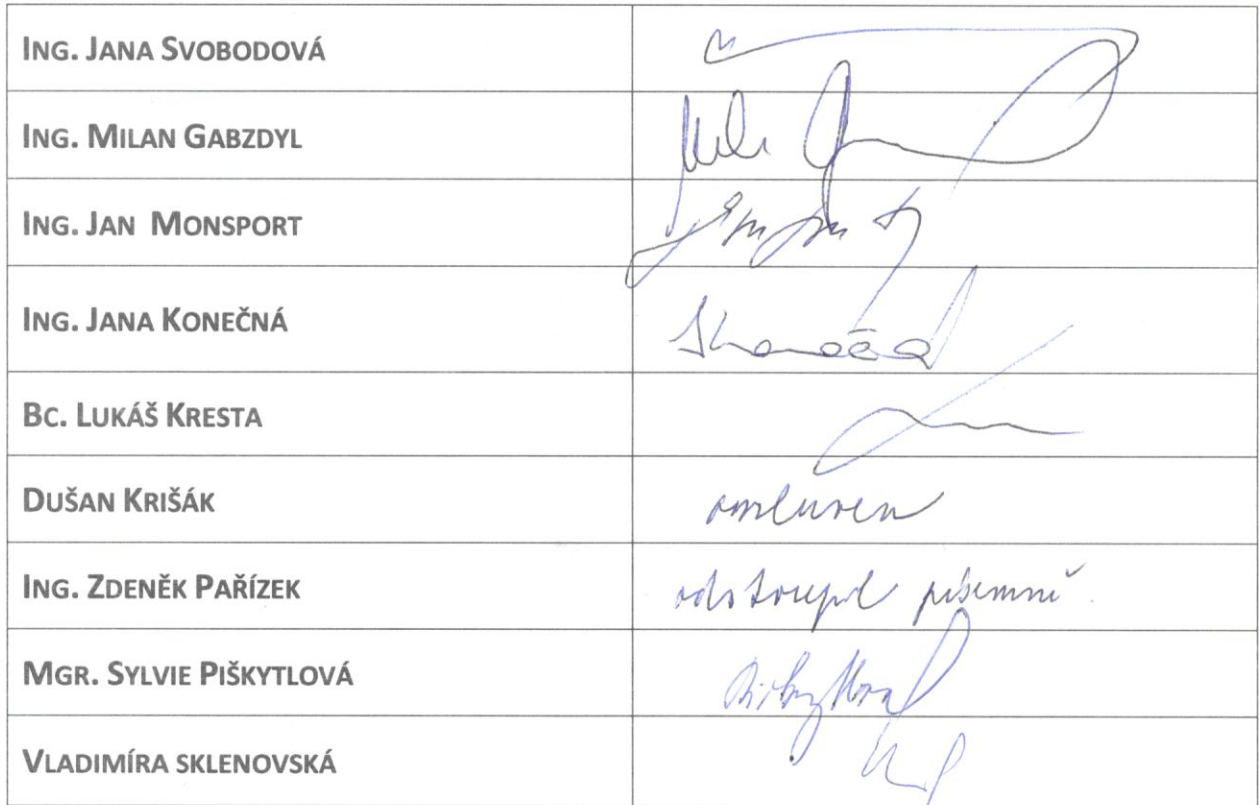 ING. JANA SVOBODOVÁ
ING. MILAN GABZDYL
ING. JAN MONSPORT
ING. JANA KONEČNÁ
BC. LUKÁŠ KRESTA
DUŠAN KRIŠÁK omluven
ING. ZDENĚK PAŘÍZEK odstoupil písemně.
MGR. SYLVIE PIŠKYTLOVÁ
VLADIMÍRA SKLENOVSKÁ